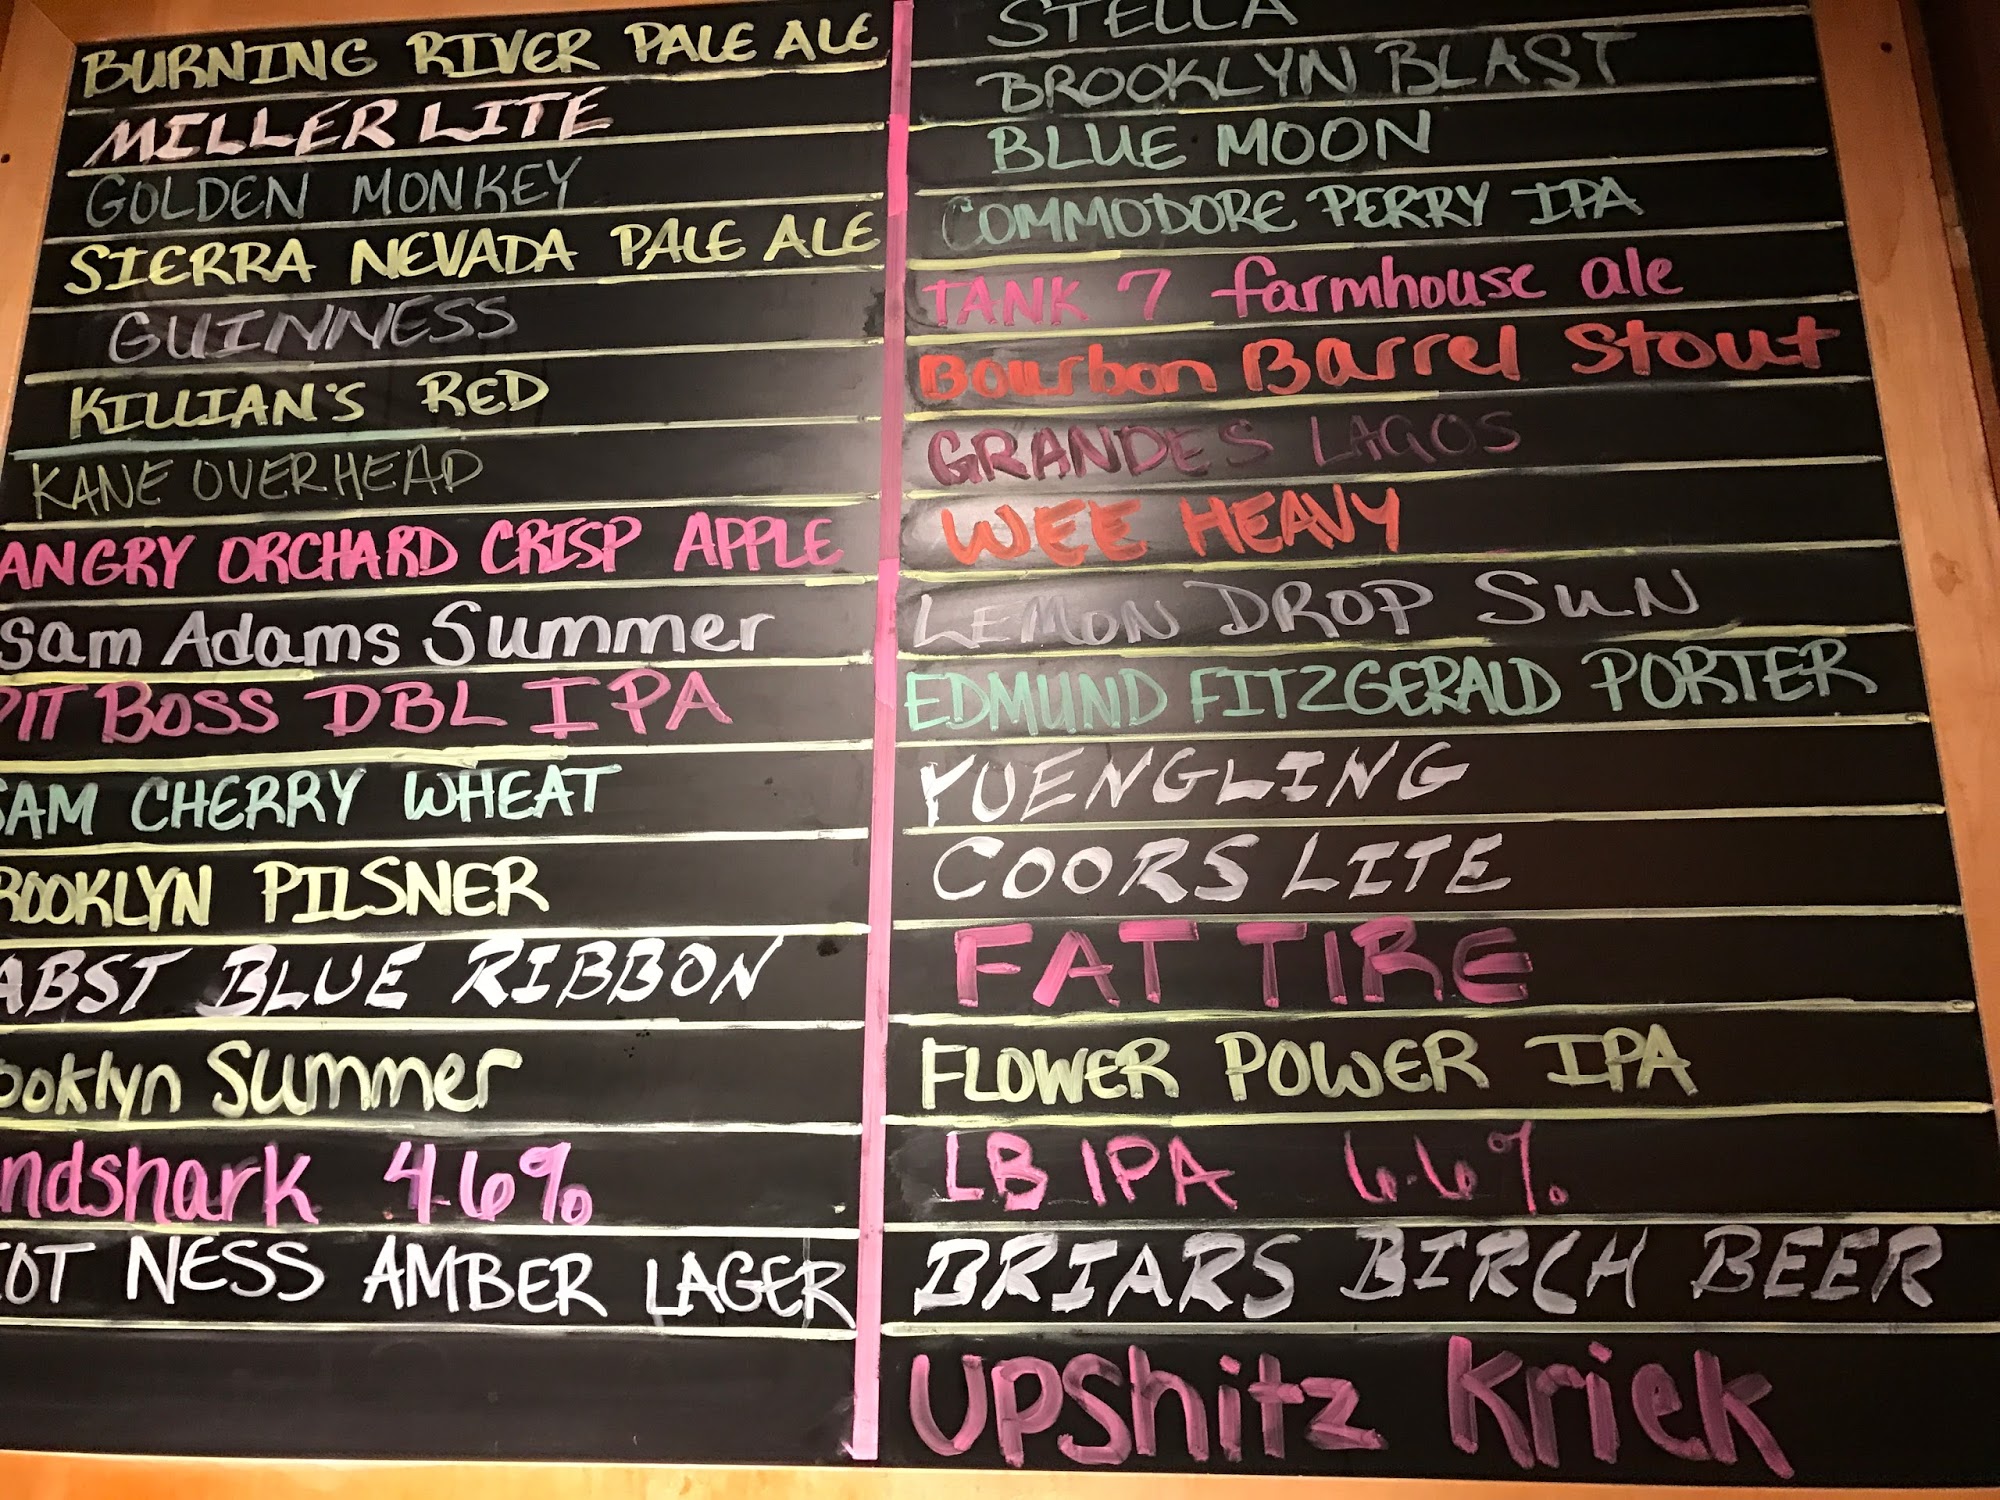 BURNING RIVER PALE ALE
MILLER LITE
GOLDEN MONKEY
SIERRA NEVADA PALE ALE
GUINNESS
KILLIAN'S RED
KANE OVERHEAD
ANGRY ORCHARD CRISP APPLE
Sam Adams Summer
PIT BOSS DBL IPA
SAM CHERRY WHEAT
ROOKLYN PILSNER
ABST BLUE RIBBON
ooklyn Summer
ndshark 4.6%
IOT NESS AMBER LAGER
STELLA
BROOKLYN BLAST
BLUE MOON
COMMODORE PERRY IPA
TANK 7 farmhouse ale
Bourbon Barrel Stout
GRANDES LAGOS
WEE HEAVY
LEMON DROP SUN
EDMUND FITZGERALD PORTER
YUENGLING
COORS LITE
FAT TIRE
FLOWER POWER IPA
LB IPA 6.6%
BRIARS BIRCH BEER
UPShitz Kriek